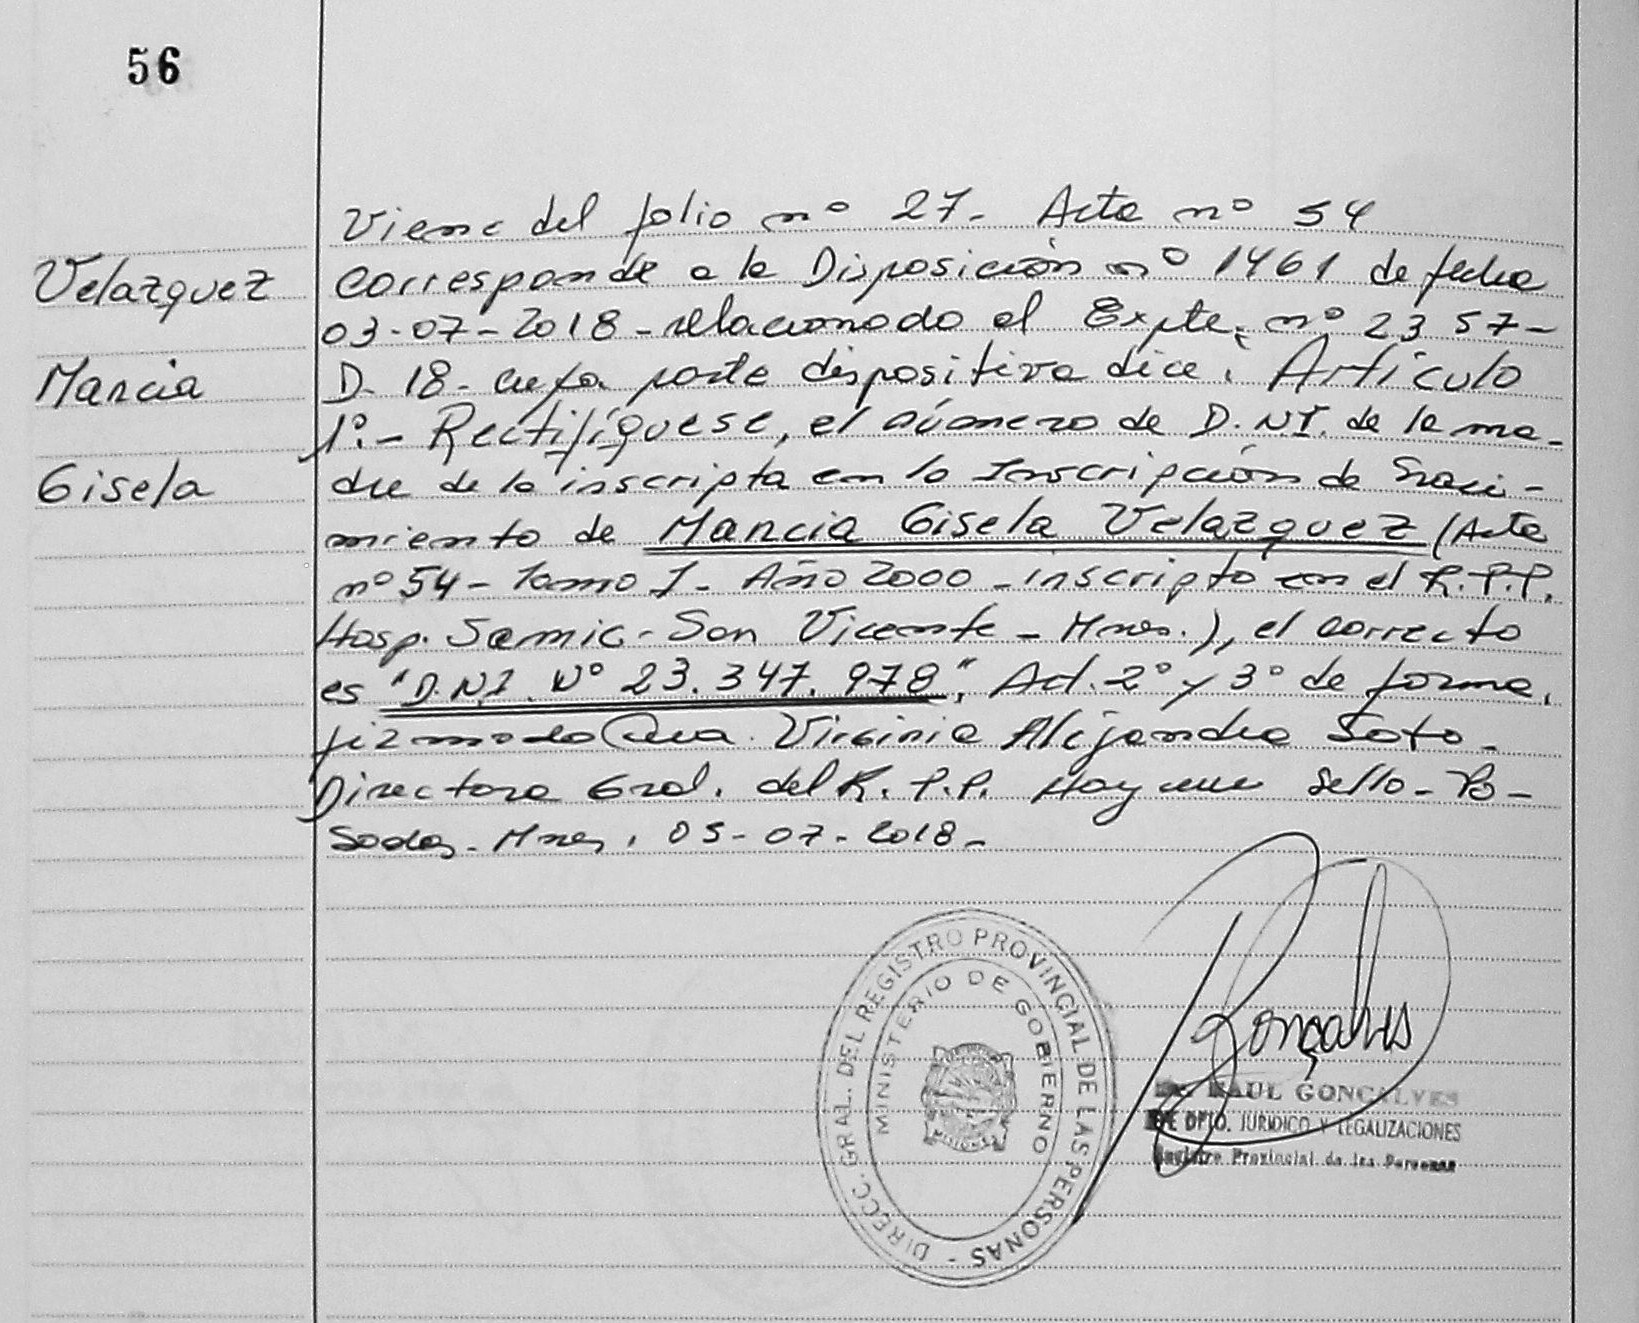 56
Viene del folio nº 27- Acta nº 54
Velazquez
corresponde a la Disposición nº 1461 de fecha
03-07-2018- relacionado al Expte. nº 2357-
Marcia
D- 18- cuya parte dispositiva dice: Artículo
1º.- Rectifíquese, el número de D.N.I. de la ma-
Gisela
dre de la inscripta en la Inscripción de Naci-
miento de Marcia Gisela Velazquez (Acta
nº 54- Tomo I- Año 2000- inscripto en el R.P.P.
Hosp. Samic- San Vicente- Mnes.), el correcto
es "D.N.I. Nº 23.347.978". Art. 2º y 3º de forma.
firmado Dra. Virginia Alejandra Soto-
Directora Gral. del R.P.P. Hay un sello- Po-
sadas- Mnes, 05-07-2018-
DIRECC. GRAL. DEL REGISTRO PROVINCIAL DE LAS PERSONAS -
MINISTERIO DE GOBIERNO
MISIONES
Gonçalves
Dr. RAUL GONCALVES
DPTO. JURIDICO Y LEGALIZACIONES
Registro Provincial de las Personas